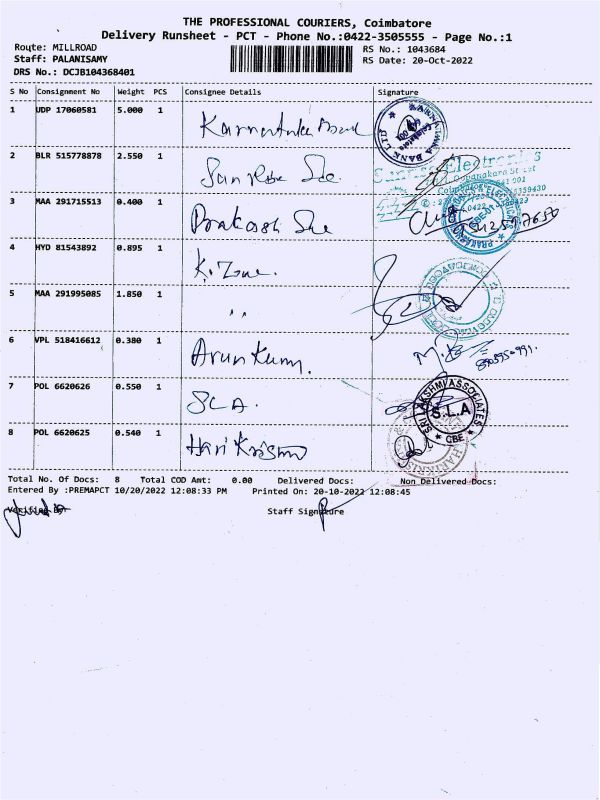 THE PROFESSIONAL COURIERS, Coimbatore
Delivery Runsheet - PCT - Phone No.:0422-3505555 - Page No.:1
Route: MILLROAD RS No.: 1043684
Staff: PALANISAMY RS Date: 20-Oct-2022
DRS No.: DCJB104368401
S No Consignment No Weight PCS Consignee Details Signature
1 UDP 17060581 5.000 1 Karnataka Bank
2 BLR 515778878 2.550 1 Sunrise
Sunrise Electronics
3 MAA 291715513 0.400 1 Prakash
4 HYD 81543892 0.895 1 K. Zone.
5 MAA 291995085 1.850 1 "
6 VPL 518416612 0.380 1 Arun Kumar.
7 POL 6620626 0.550 1 SLA.
SRI LAKSHMI ASSOCIATES
S.L.A
CBE
8 POL 6620625 0.540 1 Hari Krishna
Total No. Of Docs: 8 Total COD Amt: 0.00 Delivered Docs: Non Delivered Docs:
Entered By :PREMAPCT 10/20/2022 12:08:33 PM Printed On: 20-10-2022 12:08:45
Staff Signature